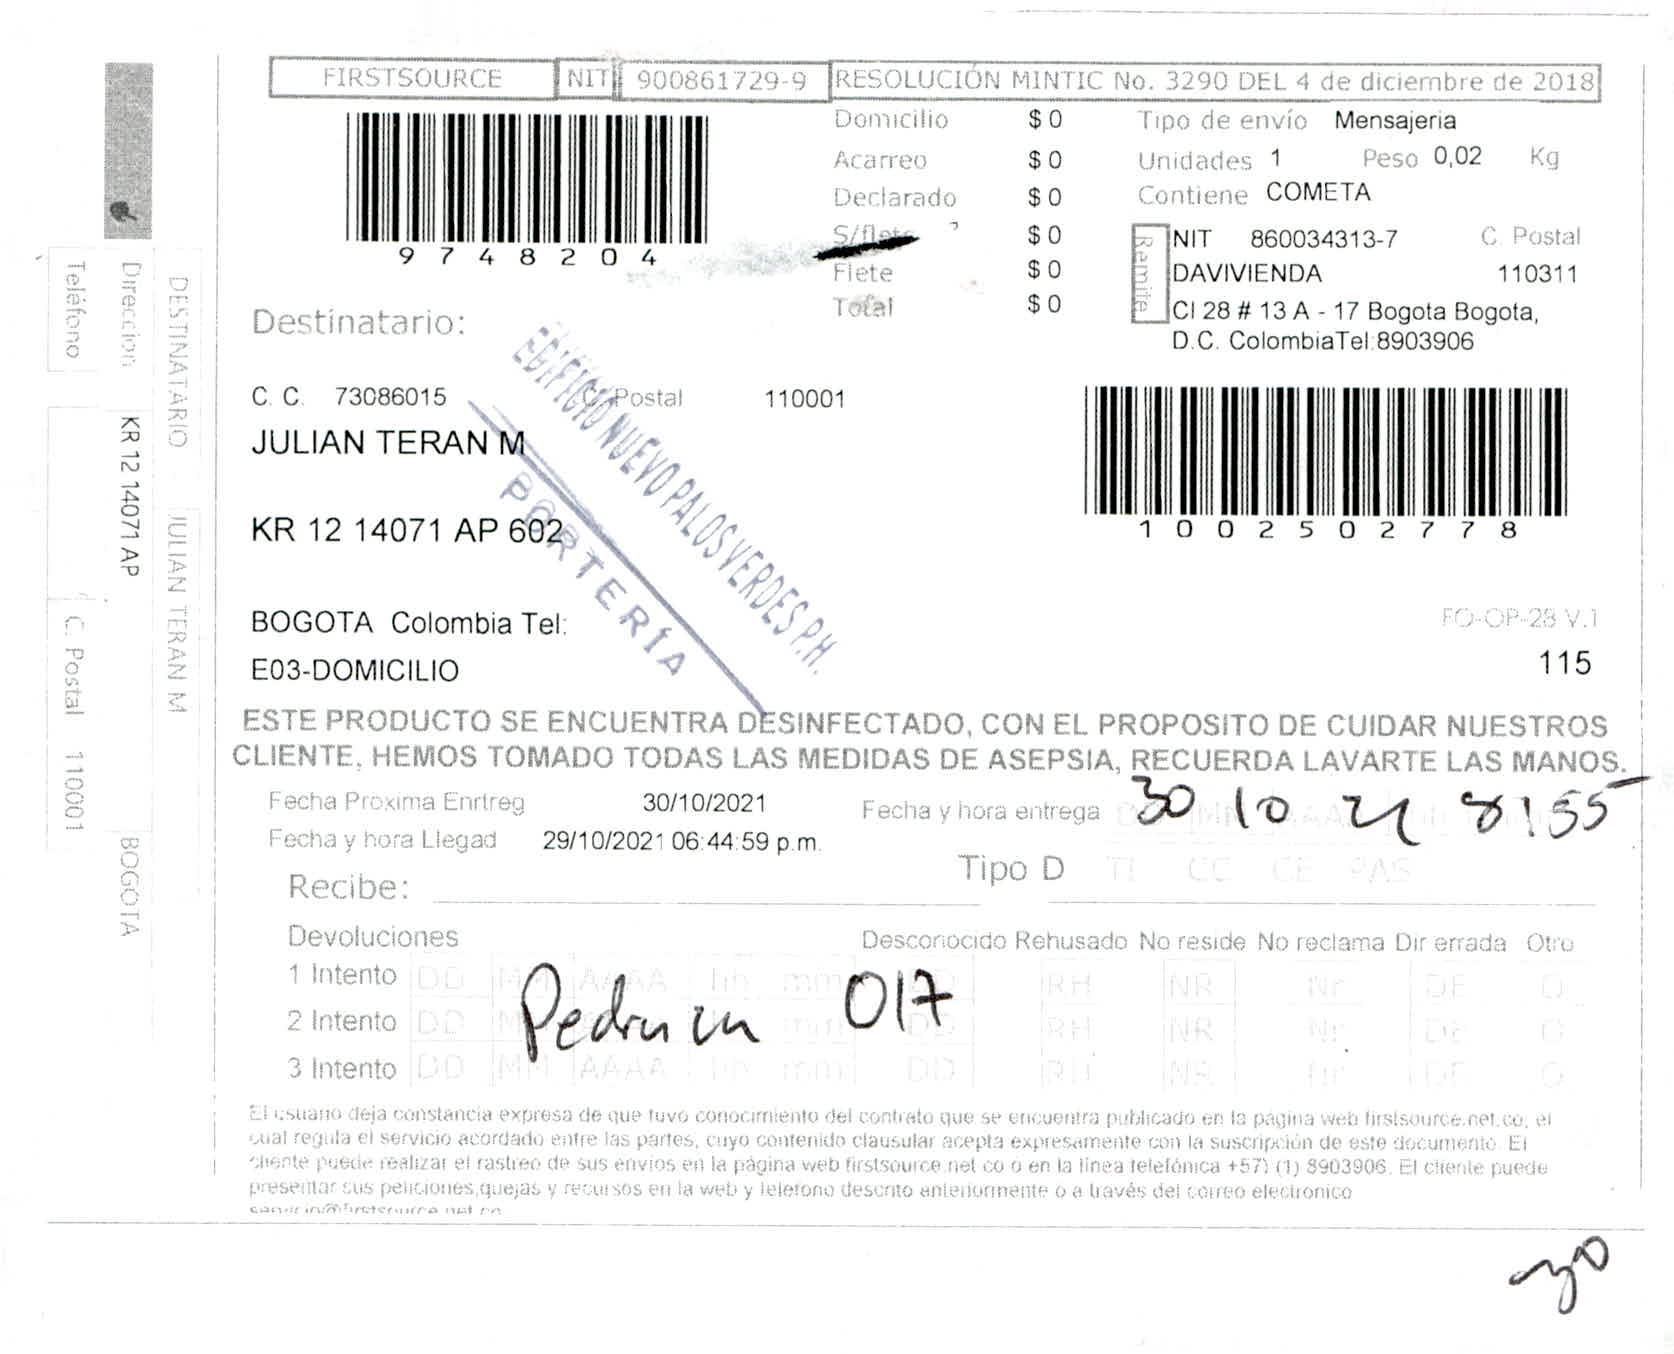 FIRSTSOURCE NIT 900861729-9 RESOLUCIÓN MINTIC No. 3290 DEL 4 de diciembre de 2018
9748204
Domicilio $ 0
Acarreo $ 0
Declarado $ 0
S/flete $ 0
Flete $ 0
Total $ 0
Tipo de envío Mensajeria
Unidades 1 Peso 0,02 Kg
Contiene COMETA
Remite
NIT 860034313-7 C. Postal
DAVIVIENDA 110311
Cl 28 # 13 A - 17 Bogota Bogota,
D.C. ColombiaTel:8903906
Destinatario:
C. C. 73086015 C. Postal 110001
JULIAN TERAN M
KR 12 14071 AP 602
BOGOTA Colombia Tel:
E03-DOMICILIO
EDIFICIO NUEVO PALOS VERDES P.H.
PORTERÍA
1002502778
FO-OP-28 V.1
115
ESTE PRODUCTO SE ENCUENTRA DESINFECTADO, CON EL PROPOSITO DE CUIDAR NUESTROS
CLIENTE, HEMOS TOMADO TODAS LAS MEDIDAS DE ASEPSIA, RECUERDA LAVARTE LAS MANOS.
Fecha Proxima Enrtreg 30/10/2021 Fecha y hora entrega 30 10 21 8:55
Fecha y hora Llegad 29/10/2021 06:44:59 p.m.
Tipo D TI CC CE PAS
Recibe:
Devoluciones Desconocido Rehusado No reside No reclama Dir errada Otro
1 Intento DD MM AAAA hh mm DD RH NR Nr DE O
2 Intento DD mm DD RH NR Nr DE O
3 Intento DD MM AAAA hh mm DD RH NR Nr DE O
017
El usuario deja constancia expresa de que tuvo conocimiento del contrato que se encuentra publicado en la pagina web firstsource.net.co, el
cual regula el servicio acordado entre las partes, cuyo contenido clausular acepta expresamente con la suscripción de este documento. El
cliente puede realizar el rastreo de sus envios en la página web firstsource.net co o en la linea telefónica +57) (1) 8903906. El cliente puede
presentar sus peticiones,quejas y recursos en la web y telefono descrito anteriormente o a través del correo electronico
servicio@firstsource.net.co
DESTINATARIO JULIAN TERAN M
Direccion KR 12 14071 AP BOGOTA
Teléfono C. Postal 110001